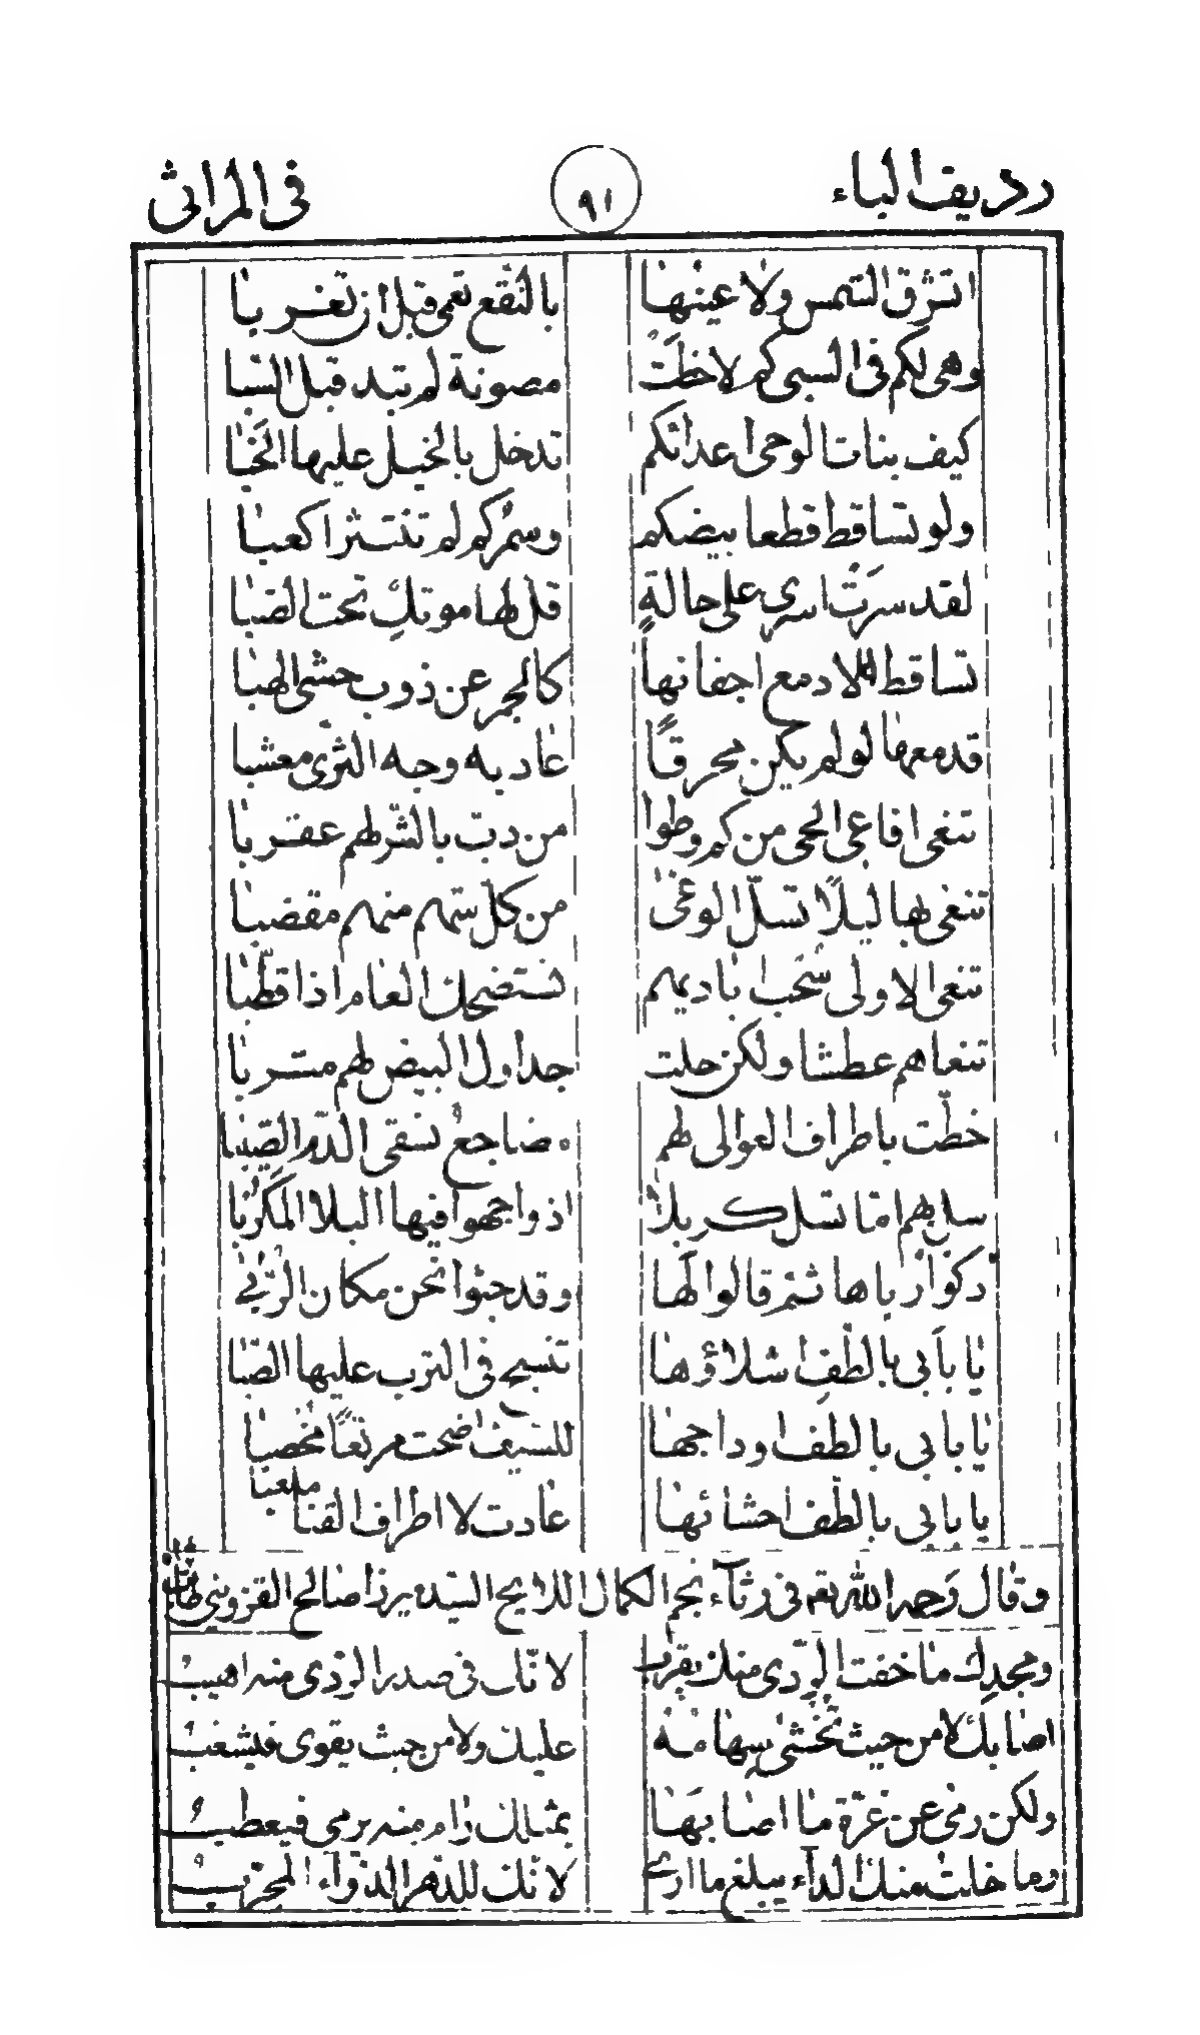 رديف الباء ٩١ فى المراثى
اتشرق الشمس ولا عينها بالنقع تعمى قبل ان تغربا
وهى لكم فى السبى كم لاحظت مصونة لم تبد قبل السبا
كيف بنات الوحى اعدائكم تدخل بالخيل عليها الخبا
ولو تساقط قطعا بيضكم وسمركم لم تنتثر اكعبا
لقد سرت اسرى على حالة قل لها موتك تحت الضبا
تساقط الادمع اجفانها كالجمر عن ذوب حشى الهبا
فدمعها لو لم يكن محرقا عاد به وجه الثرى معشبا
تنعى افاعى الحى من كم وطوا من دب بالشر لهم عقربا
تنعى بها ليلا تسل الوغى من كل شهم منهم مقضبا
تنعى الاولى سحب اياديهم تستضحك العام اذا قطبا
تنعاهم عطشا ولكن حلت جداول البيض لهم مشربا
خطت باطراف العوالى لهم مضاجع تسقى الدم الصيبا
سل بهم اما تسل كربلا اذ واجهوا فيها البلا المكربا
دكوا رباها ثم قالوا لها وقد جثوا نحن مكان الربى
يا بأبى بالطف اشلاؤها تنسج فى الترب عليها الصبا
يا بابى بالطف اوداجها للسيف اضحت مرتعا مخصبا
يا بابى بالطف احشائها عادت لاطراف القنا ملعبا
وقال رحمه الله تعم فى رثآء نجم الكمال اللايح السيد ميرزا صالح القزوينى
ومجدك ما خفت الردى منك يقرب لانك فى صدر الردى منه اهيب
اصابك لا من حيث تخشى سهامه عليك ولا من حيث يقوى فيشغب
ولكن رمى عن غرة ما اصابها بمثلك رام منه يرمى فيعطب
وما خلت منك الدآء يبلغ ما ارى لانك للدهر الدوآء المجرب